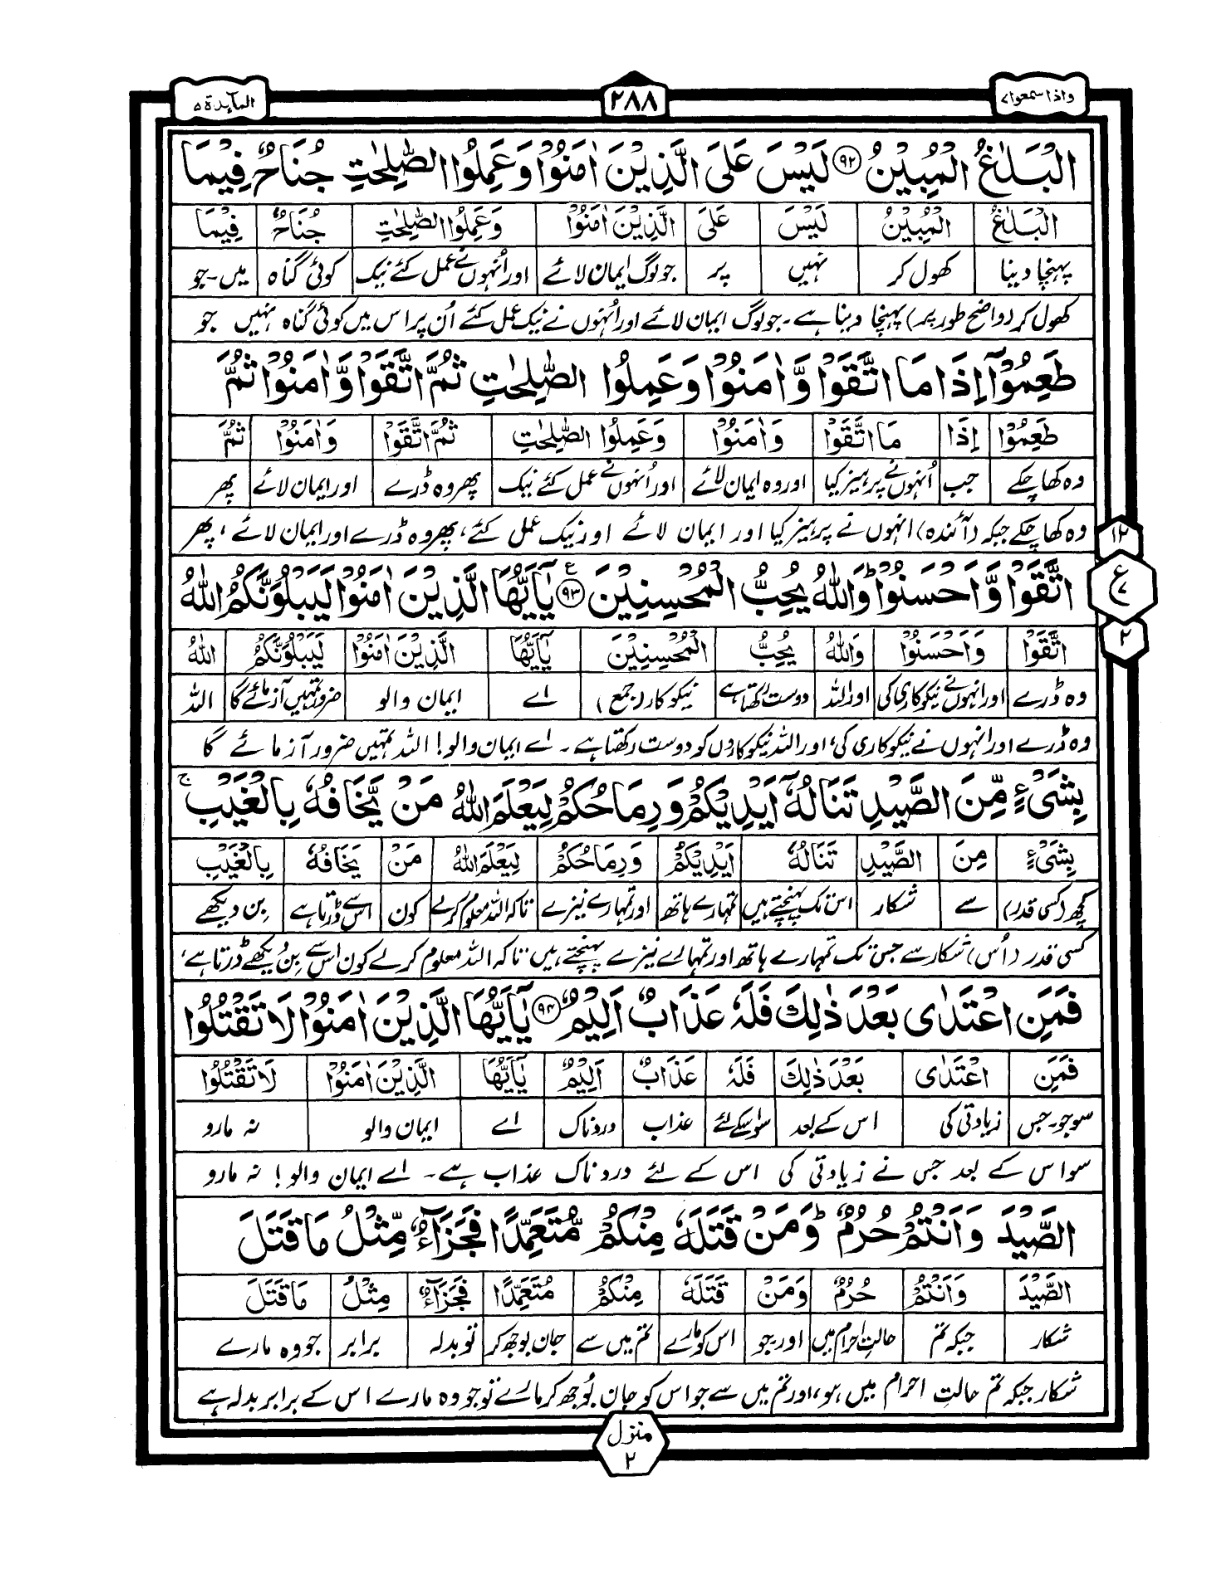 واذا سمعوا ۷ ۲۸۸ المآئدة ۵
الْبَلٰغُ الْمُبِيْنُ ﴿۹۲﴾ لَيْسَ عَلَى الَّذِيْنَ اٰمَنُوْا وَعَمِلُوا الصّٰلِحٰتِ جُنَاحٌ فِيْمَا
الْبَلٰغُ الْمُبِيْنُ لَيْسَ عَلَى الَّذِيْنَ اٰمَنُوْا وَعَمِلُوا الصّٰلِحٰتِ جُنَاحٌ فِيْمَا
پہنچا دینا کھول کر نہیں پر جو لوگ ایمان لائے اور اُنہوں نے عمل کئے نیک کوئی گناہ میں۔جو
کھول کر (واضح طور پر) پہنچا دینا ہے۔ جو لوگ ایمان لائے اور اُنہوں نے نیک عمل کئے اُن پر اس میں کوئی گناہ نہیں جو
طَعِمُوْٓا اِذَا مَا اتَّقَوْا وَّاٰمَنُوْا وَعَمِلُوا الصّٰلِحٰتِ ثُمَّ اتَّقَوْا وَّاٰمَنُوْا ثُمَّ
طَعِمُوْٓا اِذَا مَا اتَّقَوْا وَاٰمَنُوْا وَعَمِلُوا الصّٰلِحٰتِ ثُمَّ اتَّقَوْا وَاٰمَنُوْا ثُمَّ
وہ کھا چکے جب اُنہوں نے پرہیز کیا اور وہ ایمان لائے اور اُنہوں نے عمل کئے نیک پھر وہ ڈرے اور ایمان لائے پھر
وہ کھا چکے جبکہ (آئندہ) انہوں نے پرہیز کیا اور ایمان لائے اور نیک عمل کئے، پھر وہ ڈرے اور ایمان لائے، پھر
۱۲
ع
۷
۲
اتَّقَوْا وَّاَحْسَنُوْا ؕ وَاللّٰهُ يُحِبُّ الْمُحْسِنِيْنَ ﴿۹۳﴾ ع يٰٓاَيُّهَا الَّذِيْنَ اٰمَنُوْا لَيَبْلُوَنَّكُمُ اللّٰهُ
اتَّقَوْا وَاَحْسَنُوْا وَاللّٰهُ يُحِبُّ الْمُحْسِنِيْنَ يٰٓاَيُّهَا الَّذِيْنَ اٰمَنُوْا لَيَبْلُوَنَّكُمُ اللّٰهُ
وہ ڈرے اور انہوں نے نیکوکاری کی اور اللہ دوست رکھتا ہے نیکوکار (جمع) اے ایمان والو ضرور تمہیں آزمائے گا اللہ
وہ ڈرے اور انہوں نے نیکوکاری کی، اور اللہ نیکوکاروں کو دوست رکھتا ہے۔ اے ایمان والو! اللہ تمہیں ضرور آزمائے گا
بِشَيْءٍ مِّنَ الصَّيْدِ تَنَالُهٗٓ اَيْدِيْكُمْ وَرِمَاحُكُمْ لِيَعْلَمَ اللّٰهُ مَنْ يَّخَافُهٗ بِالْغَيْبِ ۚ
بِشَيْءٍ مِنَ الصَّيْدِ تَنَالُهٗ اَيْدِيْكُمْ وَرِمَاحُكُمْ لِيَعْلَمَ اللّٰهُ مَنْ يَخَافُهٗ بِالْغَيْبِ
کچھ (کسی قدر) سے شکار اس تک پہنچتے ہیں تمہارے ہاتھ اور تمہارے نیزے تاکہ اللہ معلوم کرلے کون اس سے ڈرتا ہے بِن دیکھے
کسی قدر (اُس) شکار سے جس تک تمہارے ہاتھ اور تمہارے نیزے پہنچتے ہیں، تاکہ اللہ معلوم کرلے کون اس سے بِن دیکھے ڈرتا ہے،
فَمَنِ اعْتَدٰى بَعْدَ ذٰلِكَ فَلَهٗ عَذَابٌ اَلِيْمٌ ﴿۹۴﴾ يٰٓاَيُّهَا الَّذِيْنَ اٰمَنُوْا لَا تَقْتُلُوا
فَمَنِ اعْتَدٰى بَعْدَ ذٰلِكَ فَلَهٗ عَذَابٌ اَلِيْمٌ يٰٓاَيُّهَا الَّذِيْنَ اٰمَنُوْا لَا تَقْتُلُوا
سو جو۔جس زیادتی کی اس کے بعد سو اس کیلئے عذاب دردناک اے ایمان والو نہ مارو
سو اس کے بعد جس نے زیادتی کی اس کے لئے دردناک عذاب ہے۔ اے ایمان والو! نہ مارو
الصَّيْدَ وَاَنْتُمْ حُرُمٌ ؕ وَمَنْ قَتَلَهٗ مِنْكُمْ مُّتَعَمِّدًا فَجَزَآءٌ مِّثْلُ مَا قَتَلَ
الصَّيْدَ وَاَنْتُمْ حُرُمٌ وَمَنْ قَتَلَهٗ مِنْكُمْ مُتَعَمِّدًا فَجَزَآءٌ مِثْلُ مَا قَتَلَ
شکار جبکہ تم حالتِ احرام میں اور جو اس کو مارے تم میں سے جان بوجھ کر تو بدلہ برابر جو وہ مارے
شکار جبکہ تم حالتِ احرام میں ہو، اور تم میں سے جو اس کو جان بُوجھ کر مارے تو جو وہ مارے اس کے برابر بدلہ ہے
منزل
۲